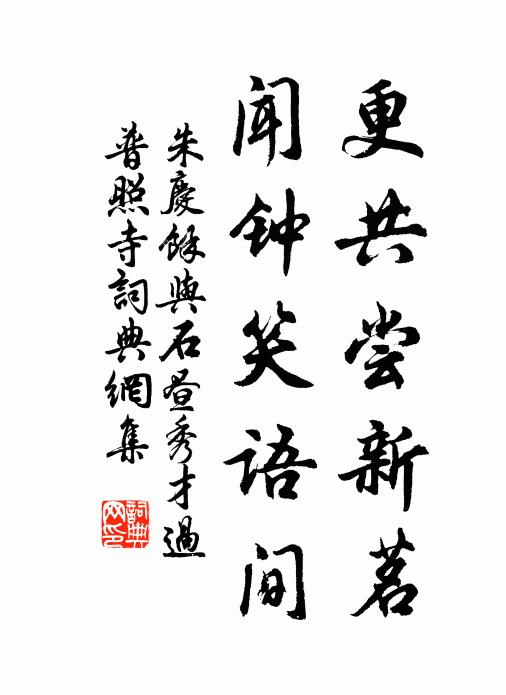 更共尝新茗
闻钟笑语间
朱慶餘與石晝秀才過
普照寺詞典網集
詞典
网印